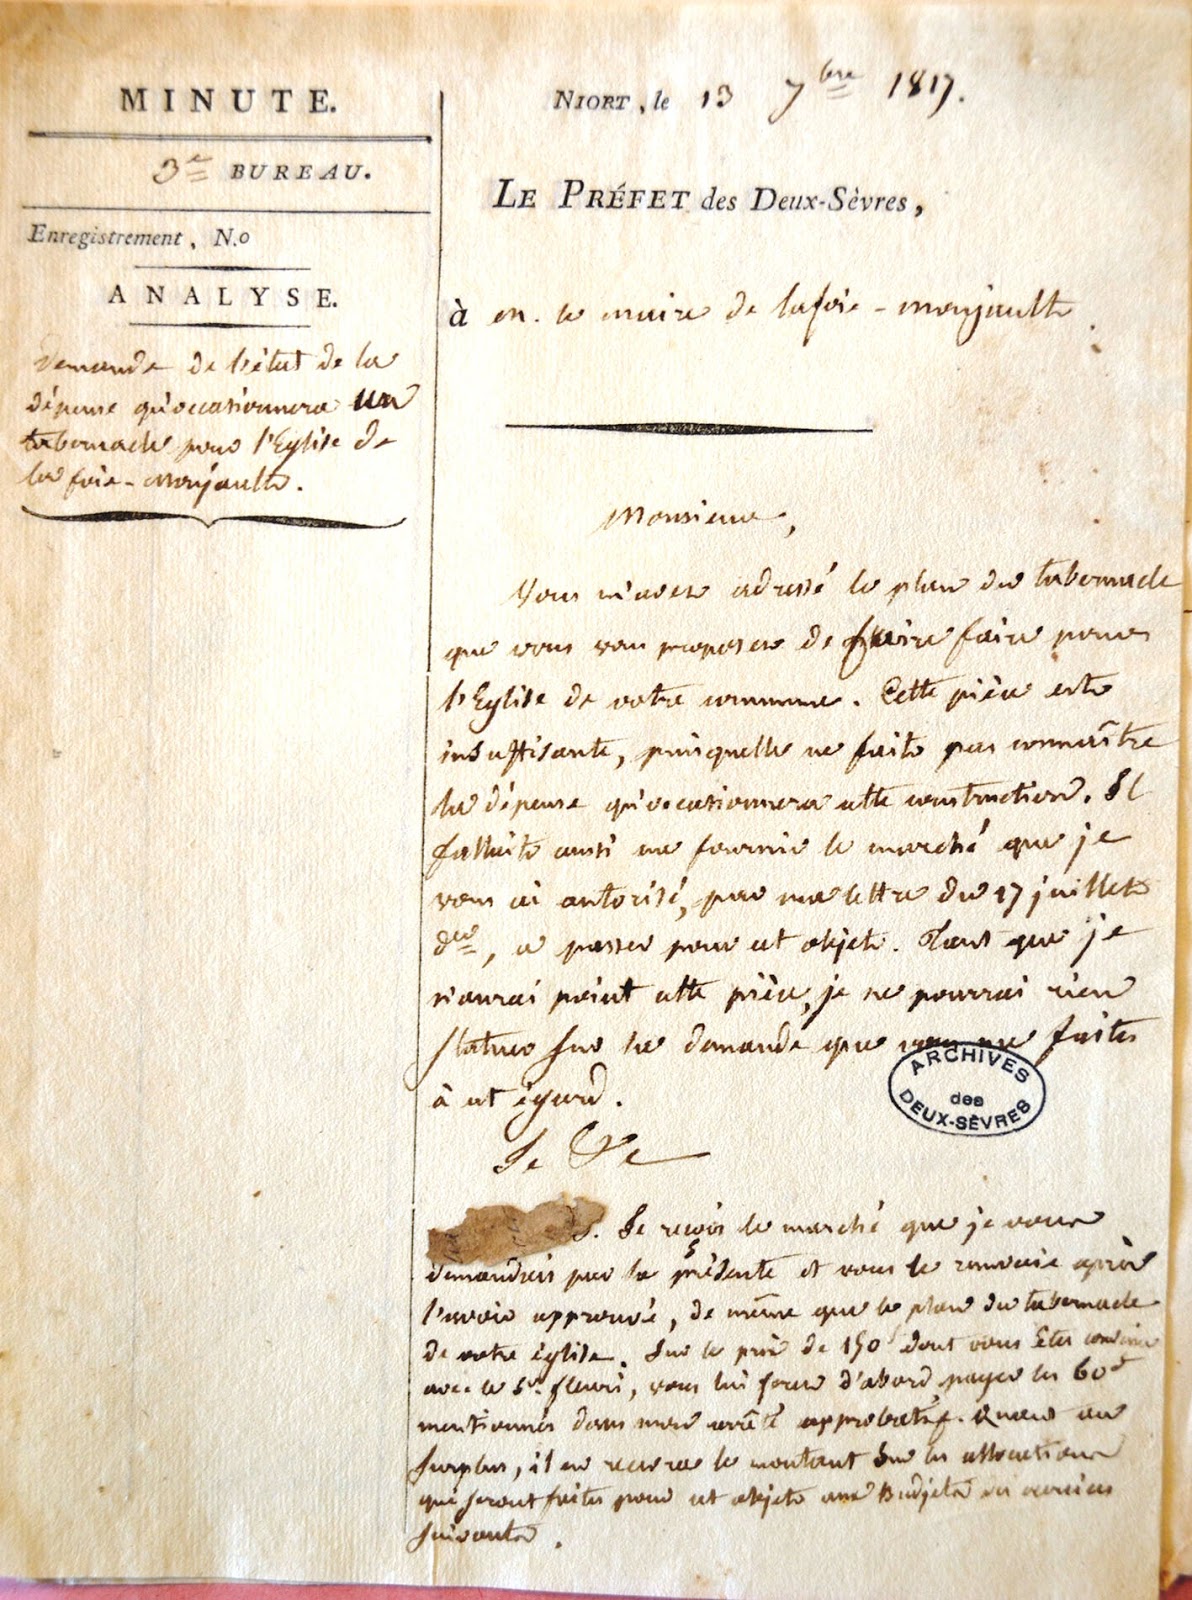 MINUTE.
3e BUREAU.
Enregistrement, N.o
ANALYSE.
Demande de l'état de la
dépense qu'occasionnera un
tabernacle pour l'Eglise de
la foie-monjault.
NIORT, le 13 7bre 1817.
LE PRÉFET des Deux-Sèvres,
à M. le maire de lafoie-monjault
Monsieur,
Vous m'avez adressé le plan du tabernacle
que vous vous proposez de faire faire pour
l'Eglise de votre commune. Cette pièce est
insuffisante, puisquelle ne fait pas connaître
la dépense qu'occasionnera cette construction. Il
fallait aussi me fournir le marché que je
vous ai autorisé, par ma lettre du 17 juillet
der, a passer pour cet objet. Tant que je
n'aurai point cette pièce, je ne pourrai rien
statuer sur la demande que vous me faites
à cet égard.
Je
ARCHIVES
des
DEUX-SÈVRES
S. Je reçois le marché que je vous
demandais par la présente et vous le renvoie après
l'avoir approuvé, de même que le plan du tabernacle
de votre église. Sur le prix de 150f dont vous êtes convenu
avec le Sr. fleuri, vous lui ferez d'abord payer les 60f
mentionnés dans mon arrêté approbatif. Quant au
surplus, il en recevra le montant sur les allocations
qui seront faites pour cet objet aux Budjets
suivants.